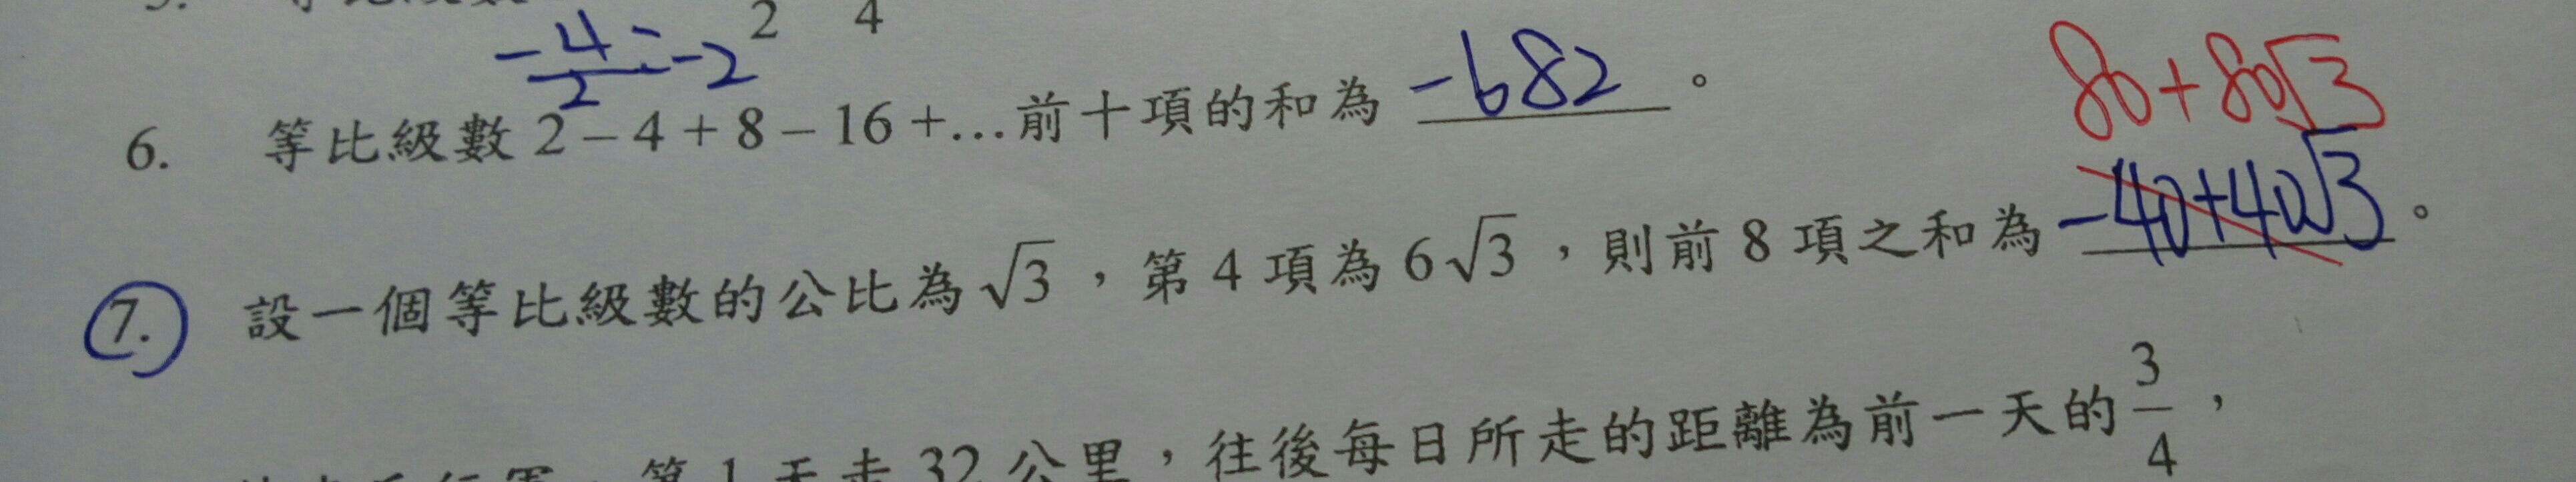 2 4
-4/2=-2
80+80√3
6. 等比級數 2-4+8-16+…前十項的和為 -682 。
7. 設一個等比級數的公比為√3，第 4 項為 6√3，則前 8 項之和為 -40+40√3 。
第 1 天走 32 公里，往後每日所走的距離為前一天的 3/4，